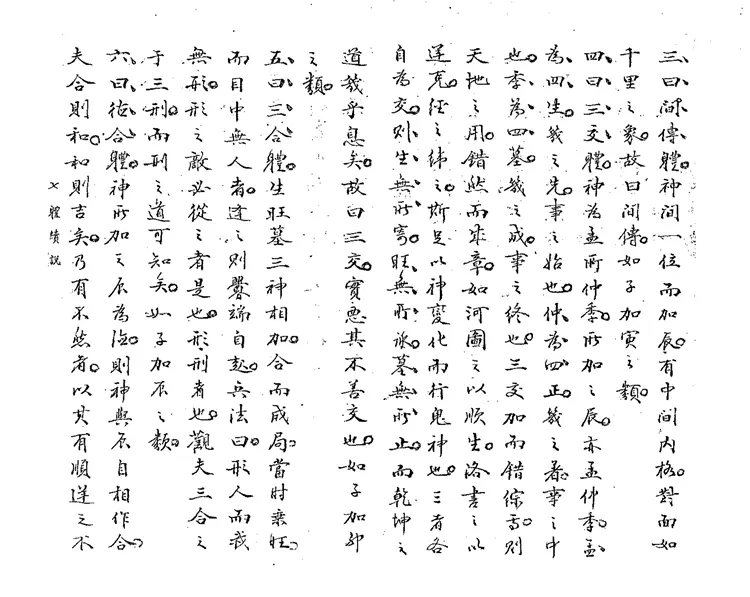 三、曰間傳體。神間一位而加辰。有中間內格。對而如
千里之象。故曰間傳。如子加寅之類。
四、曰三交體。神為孟所仲季。所加之辰。亦孟仲季。孟
為四生。幾之先。事之始也。仲為四正。幾之着。事之中
也。季為四墓。幾之成。事之終也。三交加而錯綜焉。則
天地之用。錯然而成章。如河圖之以順生。洛書之以
逆克。經之緯之。斯足以神變化而行鬼神也。三者各
自為交。則生無所寄。旺無所承。墓無所止。而乾坤之
道幾乎息矣。故曰三交。實惡其不善交也。如子加卯
之類。
五、曰三合體。生旺墓三神相加。合而成局。當時乘旺。
而目中無人者。逢之則釁端自起。兵法曰。形人而我
無形。形之敵必從之者是也。形刑者也。觀夫三合之
于三刑。而刑之道可知矣。如子加辰之類。
六、曰德合體。神所加之辰為德。則神與辰自相作合。
夫合則和。和則吉矣。乃有不然者。以其有順逆之不
體續說